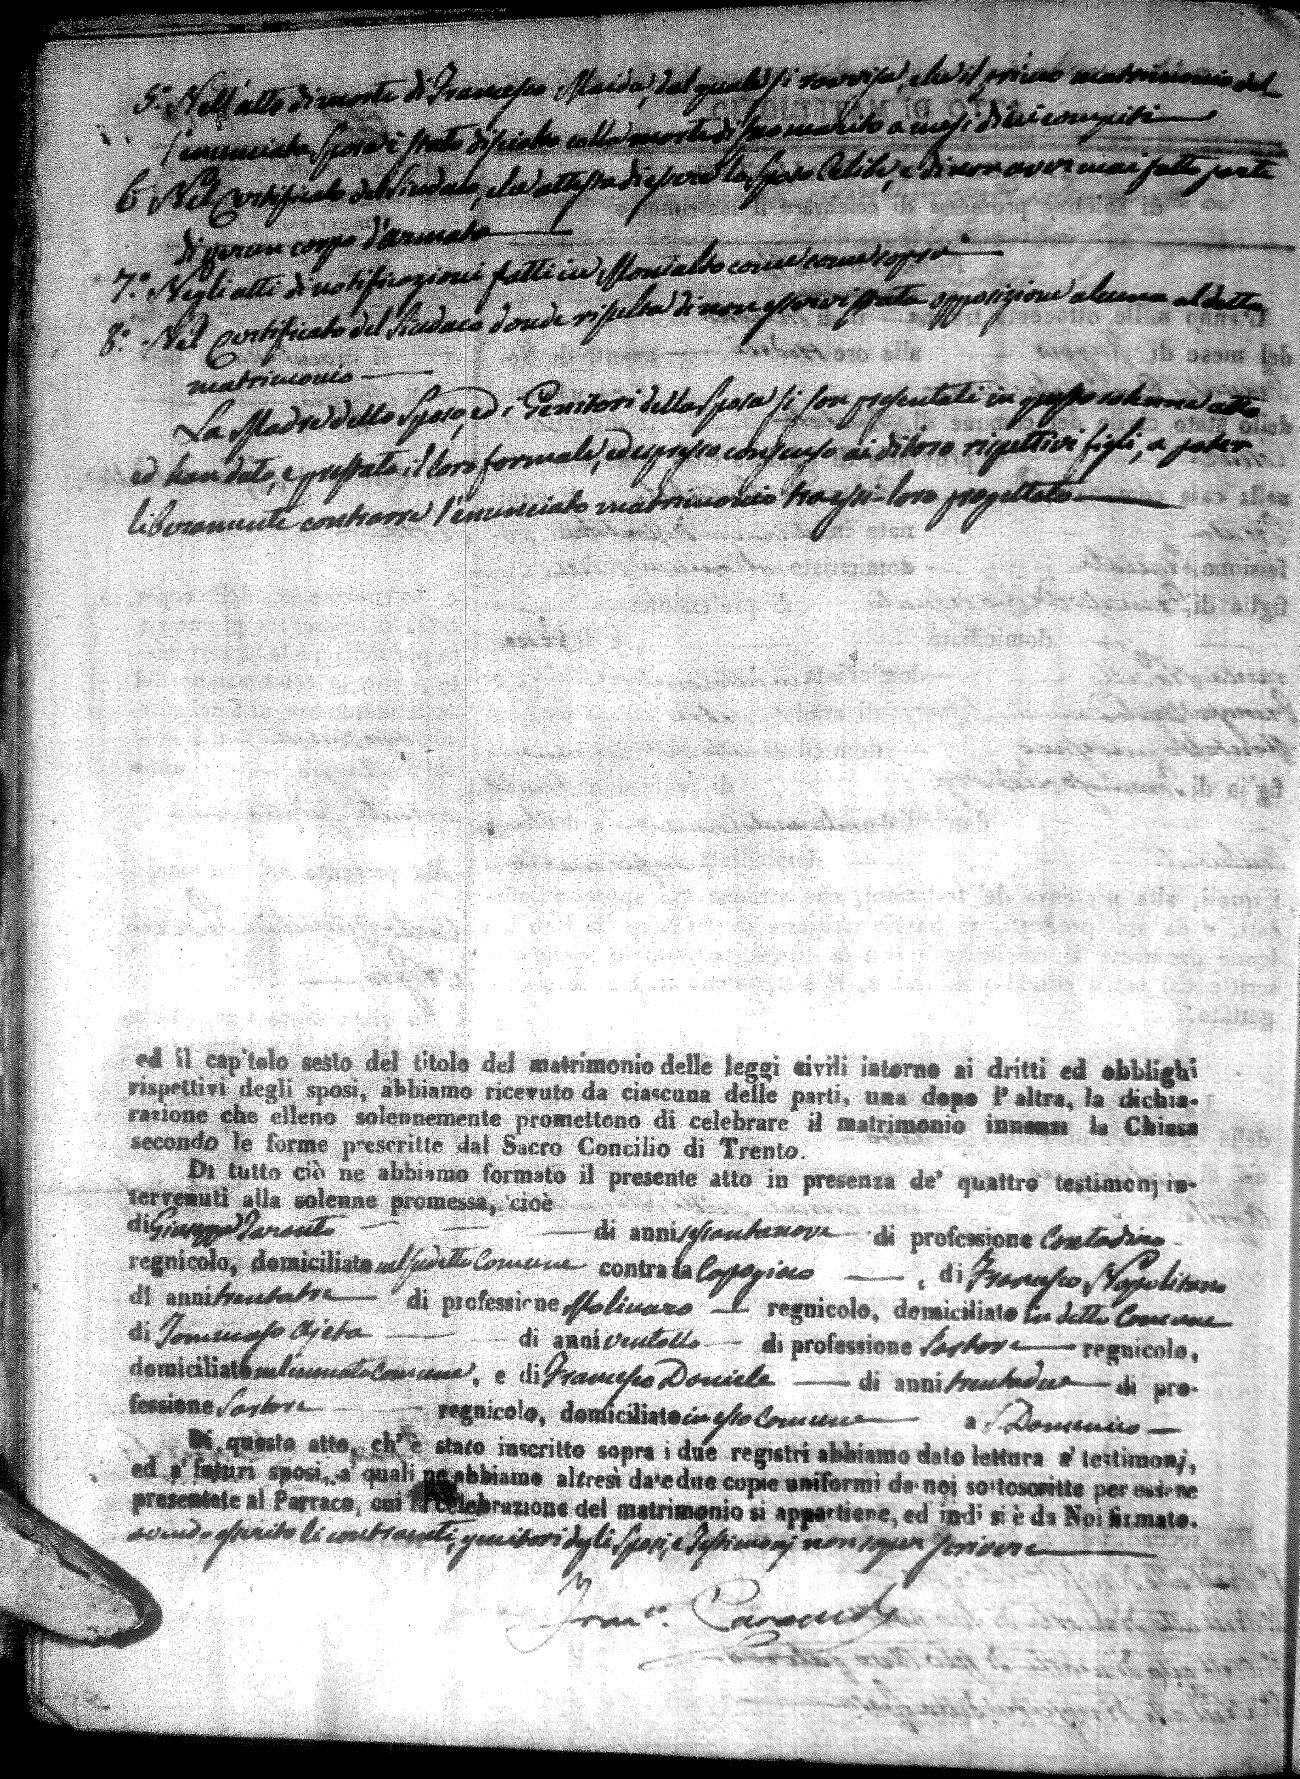 5.° Nell'atto di morte di Francesco Maida, dal quale si rovvisa, che il primo matrimonio del
l'enunciata Sposa è stato disciolto colla morte di suo marito a mesi dieci compiti
6 Nel Certificato del Sindaco, che attesta di essere lo Sposo Celibe, e di non aver mai fatto parte
di verun corpo d'armata
7.° Negli atti di notificazioni fatti in Montalto come come sopra
8.° Nel Certificato del Sindaco donde risulta di non esservi stata opposizione alcuna al detto
matrimonio
La Madre dello Sposo, ed i Genitori della Sposa si son presentati in questo solenne atto
ed han dato, e prestato il loro formale, ed espresso consenso ai di loro rispettivi figli, a poter
liberamente contrarre l'enunciato matrimonio tra essi loro progettato
ed il capitolo sesto del titolo del matrimonio delle leggi civili intorno ai dritti ed obblighi
rispettivi degli sposi, abbiamo ricevuto da ciascuna delle parti, una dopo l'altra, la dichia-
razione che elleno solennemente promettono di celebrare il matrimonio innanzi la Chiesa
secondo le forme prescritte dal Sacro Concilio di Trento.
Di tutto ciò ne abbiamo formato il presente atto in presenza de' quattro testimonj in-
tervenuti alla solenne promessa, cioè
di Giuseppe Paranto di anni sessantanove di professione Contadino
regnicolo, domiciliato nel sudetto Comune contrada , di Francesco Napolitano
di anni trentatre di professione Molinaro regnicolo, domiciliato in detto Comune
di Tommaso Ajeta di anni ventotto di professione Sartore regnicolo,
domiciliato nell'enunciato Comune, e di Francesco Daniele di anni trentadue di pro-
fessione Sartore regnicolo, domiciliato in esso Comune a S. Domenico
Di questo atto, ch'è stato inscritto sopra i due registri abbiamo dato lettura a' testimonj,
ed a' futuri sposi, a' quali ne abbiamo altresì date due copie uniformi da noi sottoscritte per essere
presentate al Parroco, cui la celebrazione del matrimonio si appartiene, ed indi si è da Noi firmato.
avendo asserito li contraenti, genitori degli Sposi, e Testimonj non saper scrivere